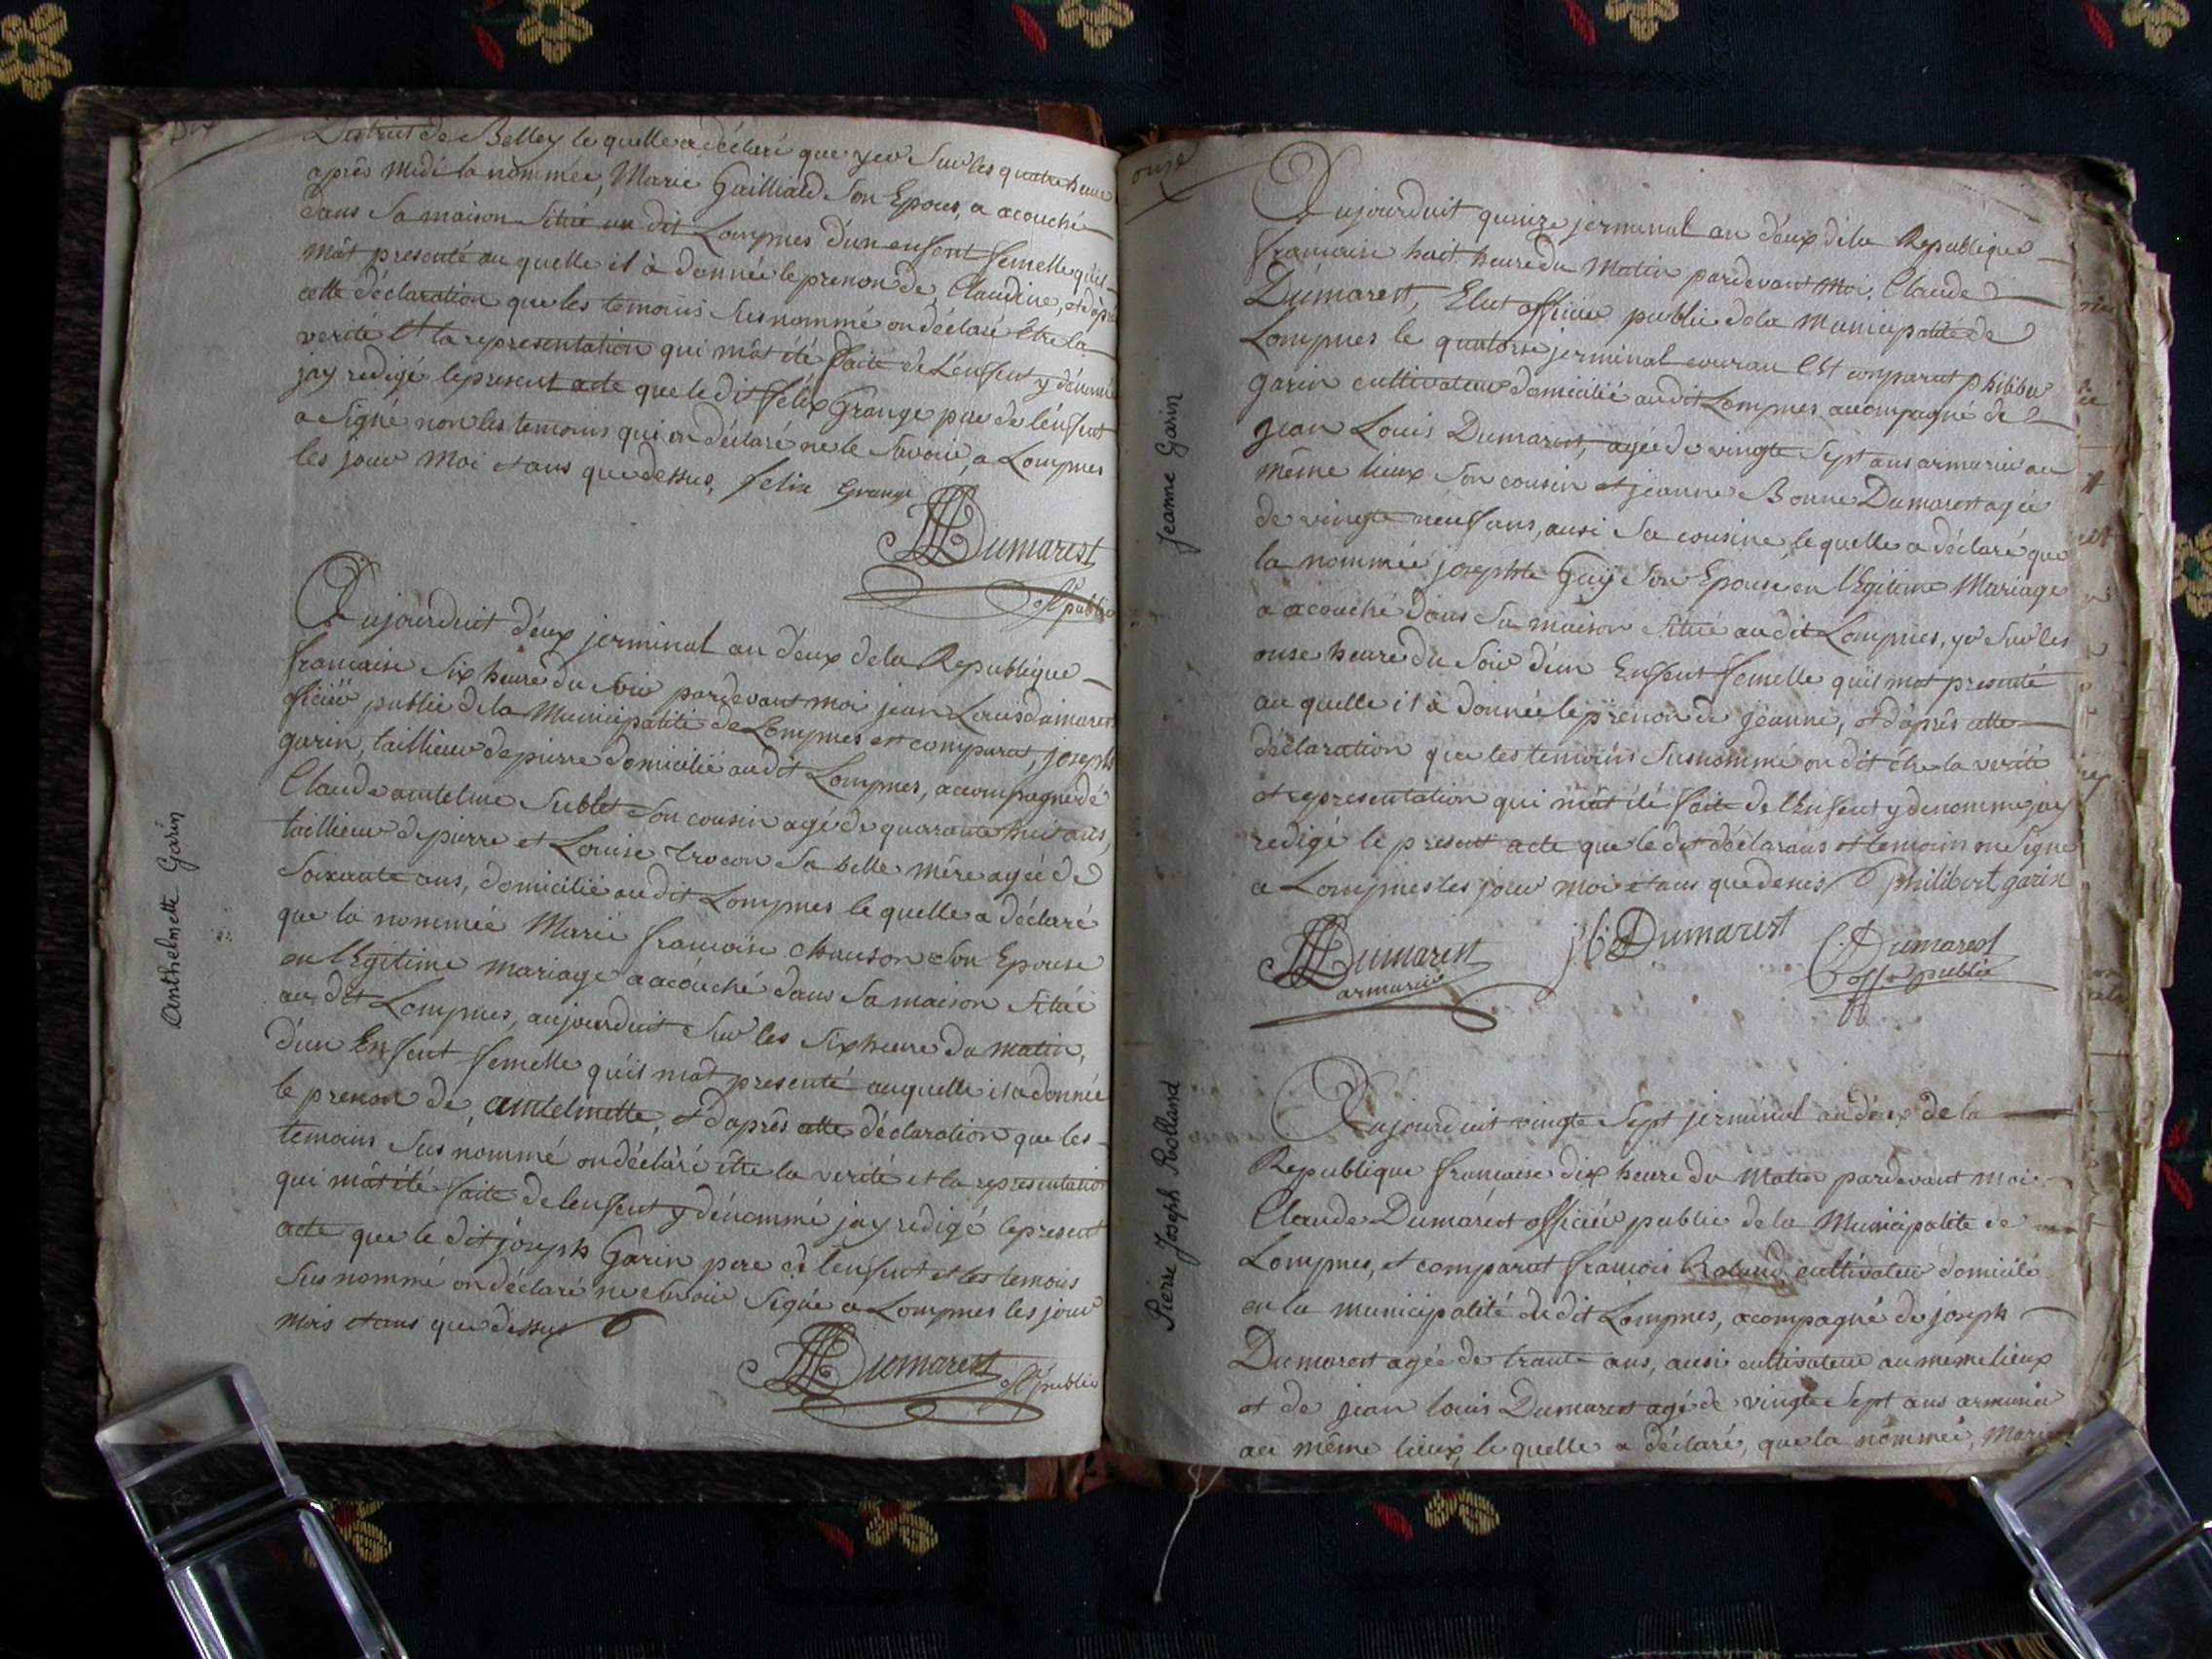 Dix
District de Belley le quelle a déclaré que yer Sur les quatre heure
après midi la nommée, Marie Gailliard Son Epouse, a acouché
dans Sa maison Situé au dit Lompnes d'un enfent femelle qu'il
mât presenté au quelle il à donnée le prenon de Claudine, et d'après
cette déclaration que les temoins Susnommé on déclaré être la
verité Et la representation qui mât été faite de L'enfent y dénommé
jay redigé le present acte que le dit félix Grange pere de l'enfent
a Signé non les temoins qui on déclaré ne le Savoir, a Lompnes
les jour moi et ans que dessus, felix Grange
JLDumarest
off. public
Anthelmette Garin
Aujourduit deux jerminal an deux de la Republique
francaise Six heure du Soir pardevant moi jean Louis dumarest
officié public de la Municipalité de Lompnes est comparut, joseph
garin, taillieur de pierre domicilié au dit Lompnes, acompagné de
Claude antelme Sublet Son cousin agé de quarante huit ans,
taillieur de pierre et Louise trocon Sa belle mère agée de
Soixante ans, domicilié au dit Lompnes le quelle a déclaré
que la nommée Marie francoise chauson Son Epouse
en légitime mariage a acouché dans Sa maison Situé
au dit Lompnes, aujourduit Sur les Six heure du matin,
d'un Enfent femelle qu'il mât presenté au quelle il a donnée
le prenon de antelmette, et d'après cette déclaration que les
temoins Sus nommé on déclaré être la verité et la representation
qui mât été faite de lenfent y dénommé jay redigé le present
acte que le dit joseph Garin pere de l'enfent et les temoins
Sus nommé on déclaré ne Savoir Signé a Lompnes les jour
mois et ans que dessus
JLDumarest
off. public
onze
Jeanne Garin
Aujourduit quinze jerminal an deux dela Republique
francaise huit heure du Matin pardevant Moi, Claude
Dumarest, Elut officié public dela Municipalité de
Lompnes le quatorse jerminal couran Est comparut philiber
garin cultivateur domicilié au dit Lompnes acompagné de
jean Louis Dumarest, agée de vingte Sept ans armurier au
même lieux Son cousin et jeanne Bonne Dumarest agée
de vingte neuf ans, ausi Sa cousine, le quelle a déclaré que
la nommée josephte Guÿ Son Epouse en l'Egitime Mariage
a acouché dans Sa maison Situé au dit Lompnes, yer Sur les
onse heure du Soir d'un Enfent femelle qu'il mat presenté
au quelle il à donnée le prenon de jeanne, et d'après cette
déclaration que les temoins Susnommé on dit être la verité
et representation qui mât été faite de l'Enfent y denommé jay
redigé le present acte que le dit déclarans et temoin on Signé
a Lompnes les jour moi et ans que desus philibert garin
JLDumarest
armurié
jb Dumarest
C. Dumarest
off. public
Pierre Joseph Rolland
Aujourduit vingte Sept jerminal an deux de la
Republique francaise dix heure du Matin pardevant moi
Claude Dumarest officié public de la Municipalité de
Lompnes, et comparut francois Roland cultivateur domicilé
en la municipalité du dit Lompnes, acompagné de joseph
Dumarest agée de trante ans, ausi cultivateur au meme lieux
et de jean louis Dumarest agé de vingte Sept ans armurier
au même lieux, le quelle a déclaré, que la nommée, Marie